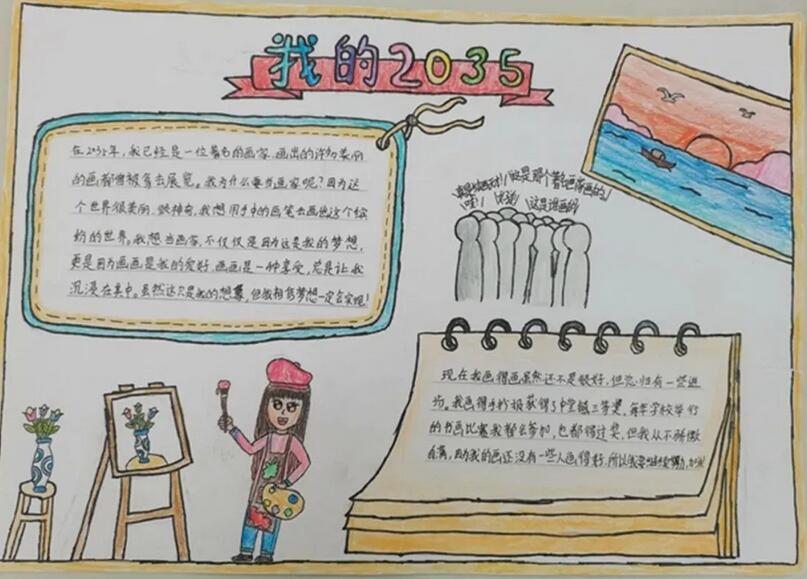 我的2035
在2035年，我已经是一位著名的画家，画出的许多美丽
的画都曾被拿去展览。我为什么要当画家呢？因为这
个世界很美丽，很神奇，我想用手中的画笔去画出这个缤
纷的世界。我想当画家，不仅仅是因为这是我的梦想，
更是因为画画是我的爱好，画画是一种享受，总是让我
沉浸在其中。虽然这只是我的想象，但我相信梦想一定会实现！
这是那个著名画家画的！
哇！
这是谁画的
现在我画得画虽然还不是很好，但总归有一些进
步。我画得手抄报获得了中学组三等奖，每年学校举行
的书画比赛我都去参加，也都得过奖，但我从不骄傲
自满，因为我的画还没有一些人画得好，所以我要继续努力，加油